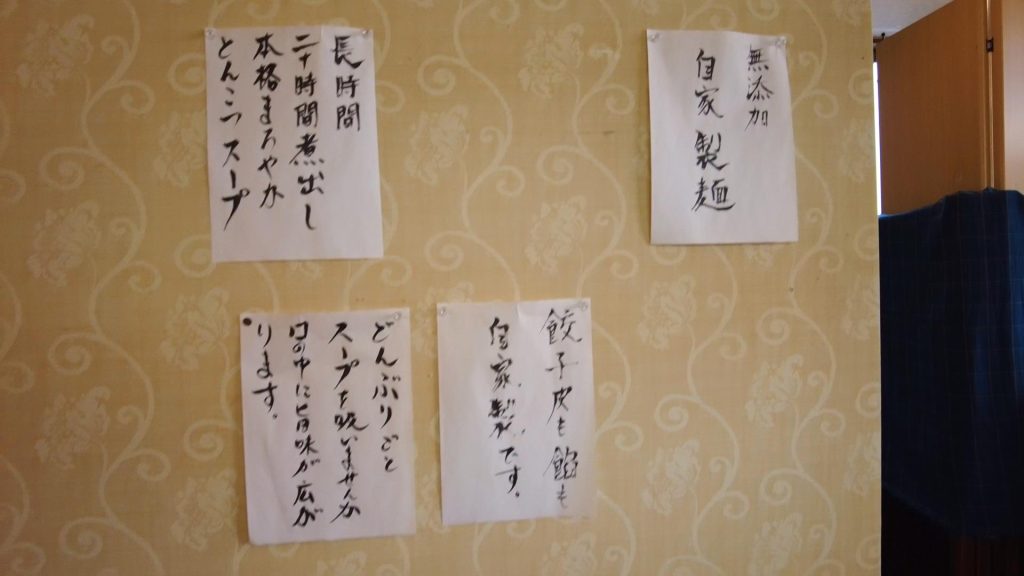 無添加
自家製麺
長時間
二十時間煮出し
本格まろやか
とんこつスープ
餃子皮も餡も
自家製です。
どんぶりごと
スープを吸いませんか
口の中に旨味が広が
ります。